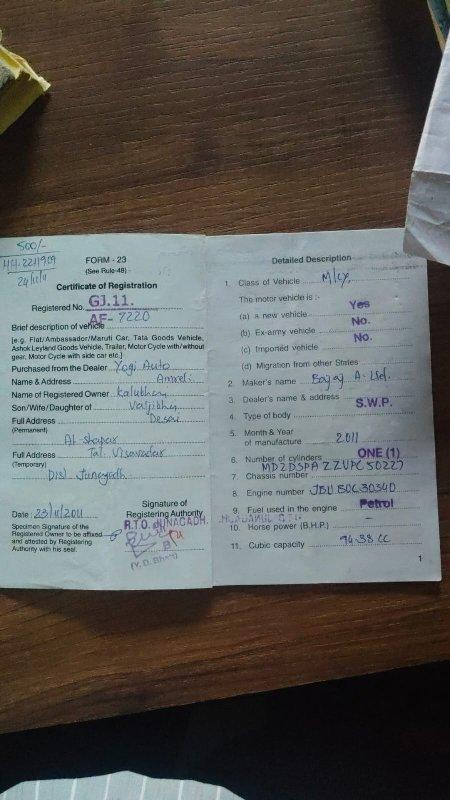 500/-
24/11/11
FORM - 23
(See Rule-48)
Certificate of Registration
Registered No. GJ.11.
AF- 7220
Brief description of vehicle
[e.g. Fiat/Ambassador/Maruti Car, Tata Goods Vehicle,
Ashok Leyland Goods Vehicle, Trailer, Motor Cycle with/without
gear, Motor Cycle with side car etc.]
Purchased from the Dealer Yogi Auto
Name & Address Amreli
Name of Registered Owner Kalubhai
Son/Wife/Daughter of Valjibhai
Full Address Desai
(Permanent)
At-shapar
Full Address Tal. Visavadar
(Temporary)
Dist Junagadh
Date : 23/11/2011
Signature of
Registering Authority
Specimen Signature of the
Registered Owner to be affixed
and attested by Registering
Authority with his seal.
R.T.O. JUNAGADH.
Detailed Description
1. Class of Vehicle M/cy.
The motor vehicle is :-
(a) a new vehicle Yes
(b) Ex-army vehicle No.
(c) Imported vehicle No.
(d) Migration from other States
2. Maker's name Bajaj A. Ltd.
3. Dealer's name & address
4. Type of body S.W.P.
5. Month & Year
of manufacture 2011
6. Number of cylinders ONE (1)
7. Chassis number MD2DSPAZZUPC50227
8. Engine number JBUBUC30340
9. Fuel used in the engine Petrol
10. Horse power (B.H.P.) -
11. Cubic capacity 94.38 CC
1